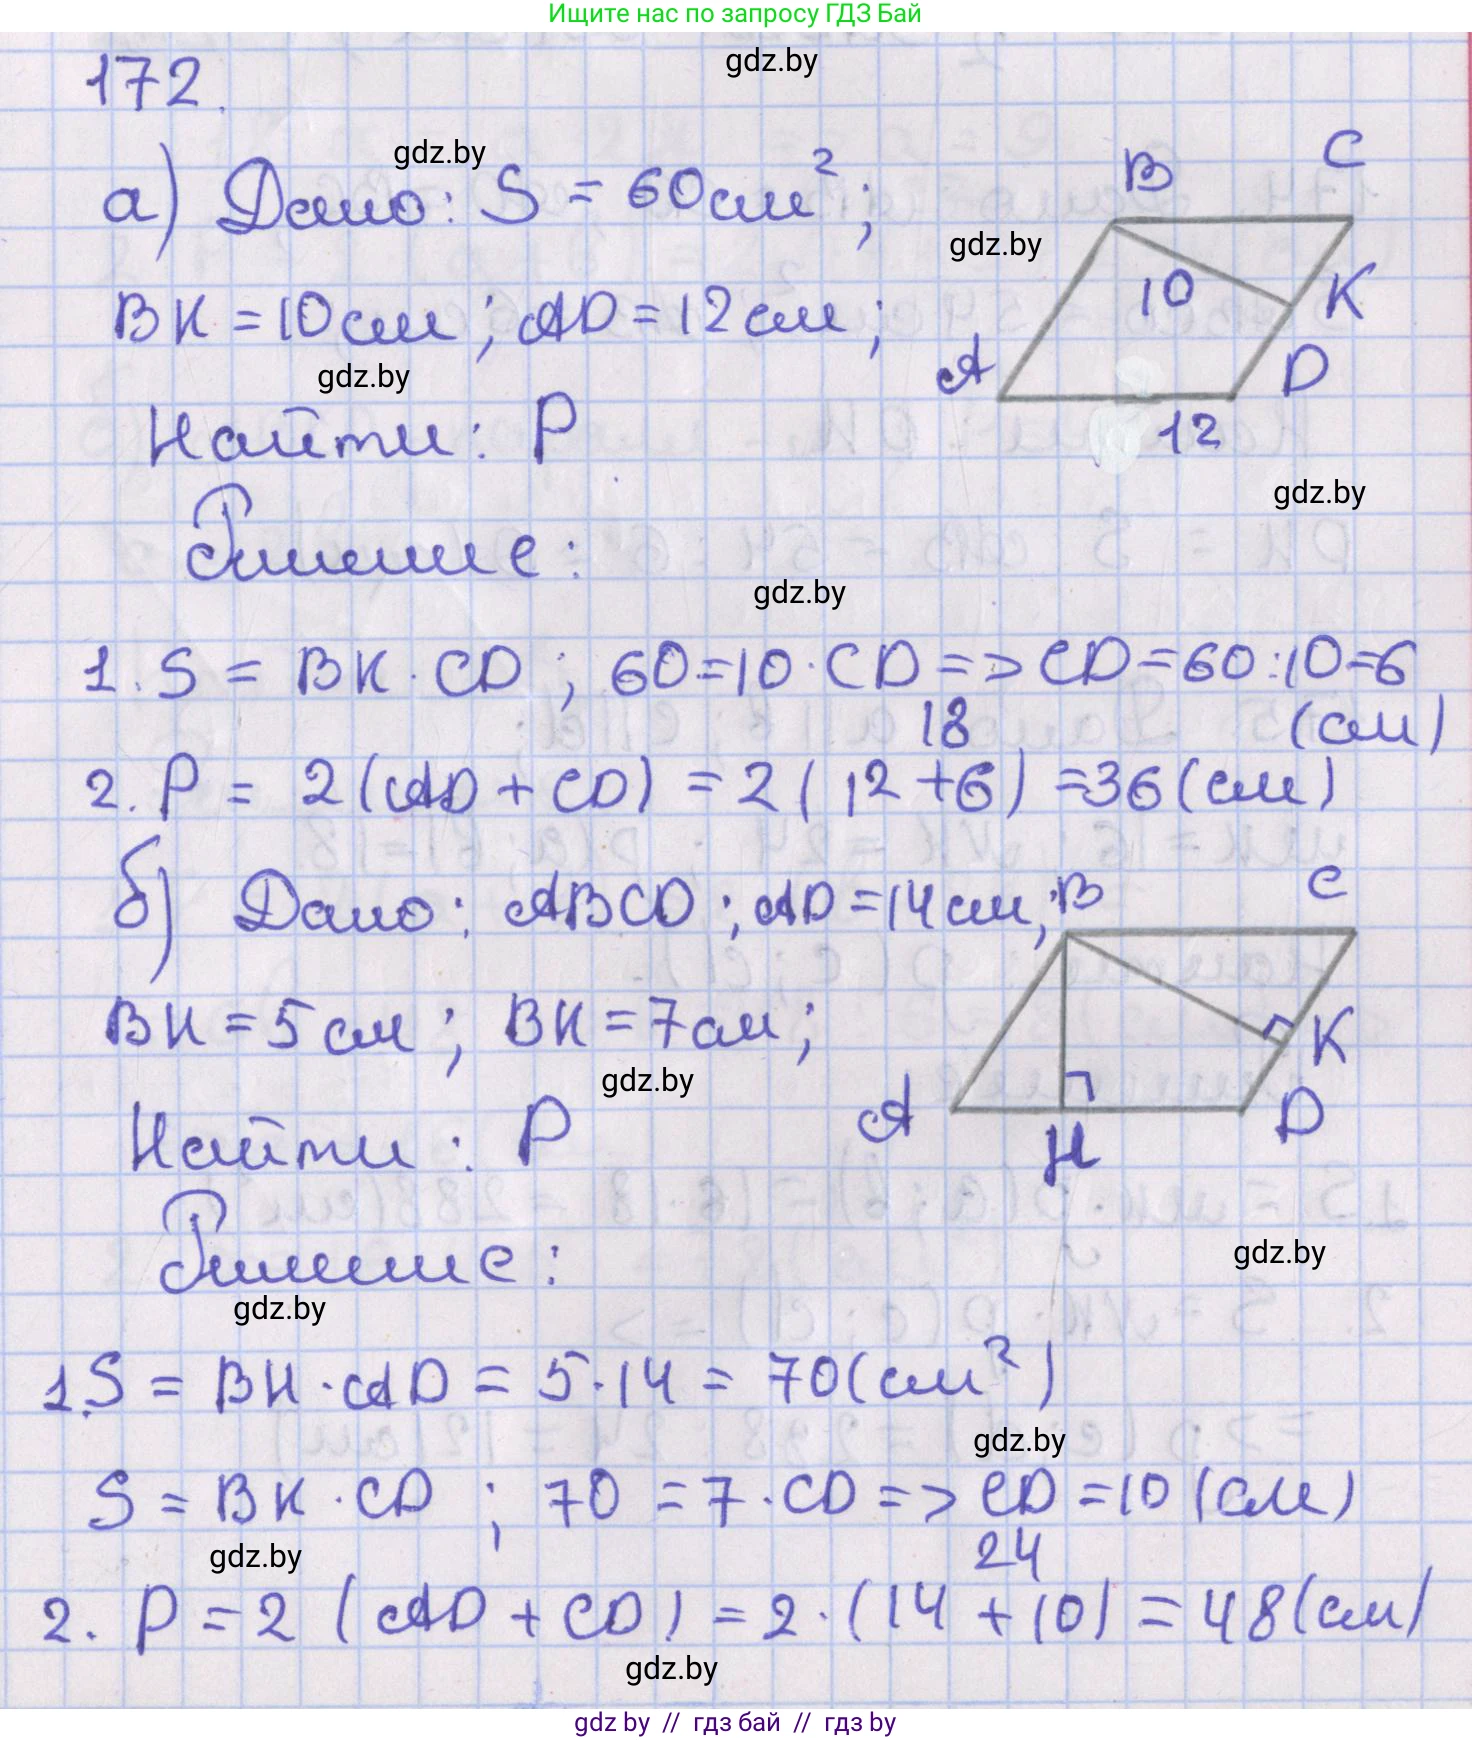 Ищите нас по запросу ГДЗ Бай
172.
gdz.by
gdz.by
а) Дано: S = 60 см²;
B C
gdz.by
10 K
BK = 10 см; AD = 12 см;
gdz.by
A D
12
Найти: P
gdz.by
Решение:
gdz.by
1. S = BK · CD; 60 = 10 · CD => CD = 60 : 10 = 6
(см)
18
2. P = 2(AD + CD) = 2(12 + 6) = 36 (см)
б) Дано: ABCD; AD = 14 см;
B C
BH = 5 см; BK = 7 см;
K
gdz.by
A H D
Найти: P
Решение:
gdz.by
gdz.by
1. S = BH · AD = 5 · 14 = 70 (см²)
gdz.by
S = BK · CD; 70 = 7 · CD => CD = 10 (см)
gdz.by
24
2. P = 2 (AD + CD) = 2 · (14 + 10) = 48 (см)
gdz.by
gdz by // гдз бай // гдз by